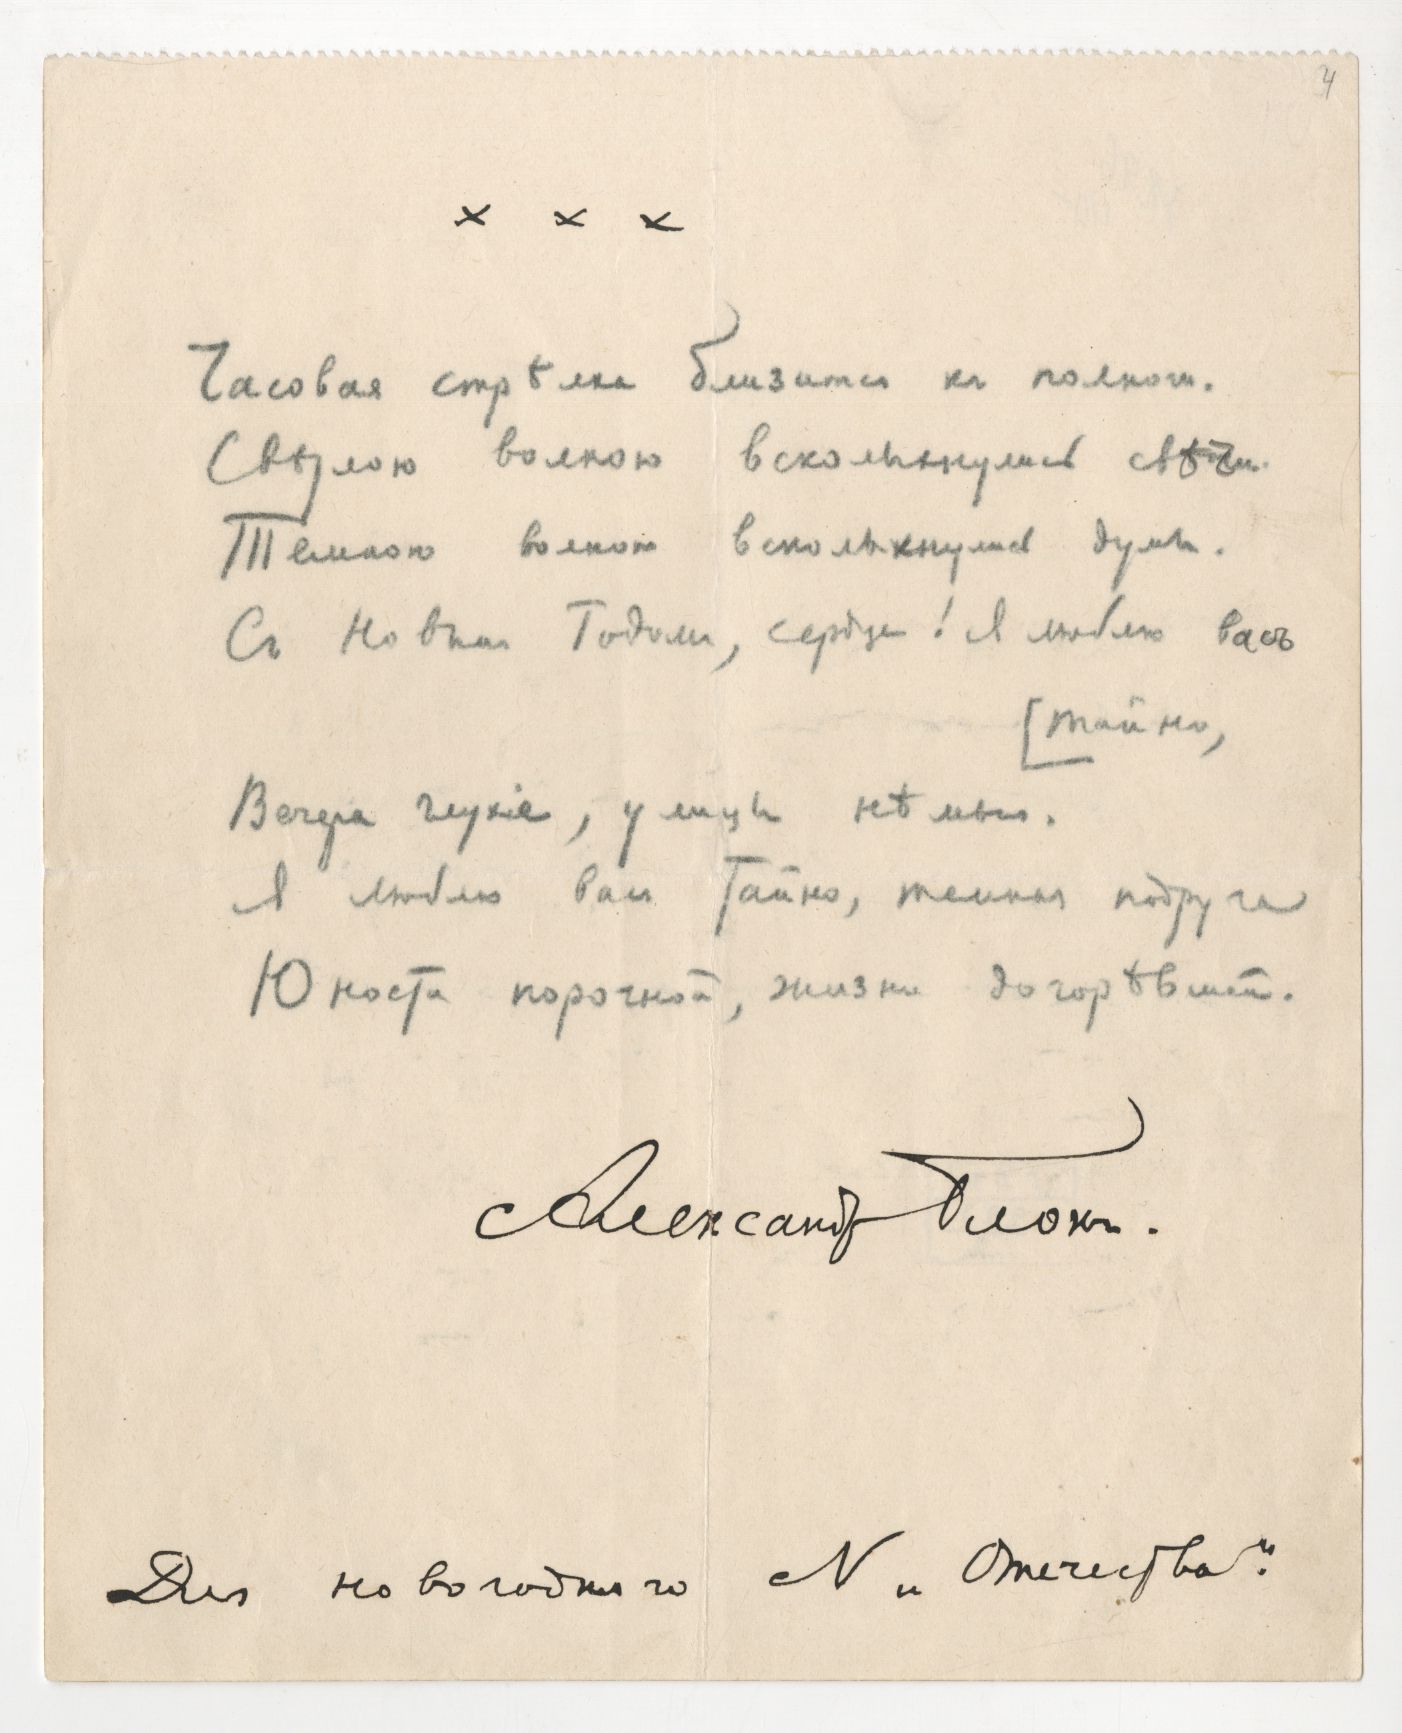 4
× × ×
Часовая стрѣлка близится къ полночи.
Свѣтлою волною всколыхнулись свѣчи.
Темною волною всколыхнулись думы.
Съ Новымъ Годомъ, сердце! Я люблю васъ
[тайно,
Вечера глухіе, улицы нѣмыя.
Я люблю васъ тайно, темная подруга
Юности порочной, жизни догорѣвшей.
Александръ Блокъ.
Для новогодняго N „Отечества“.